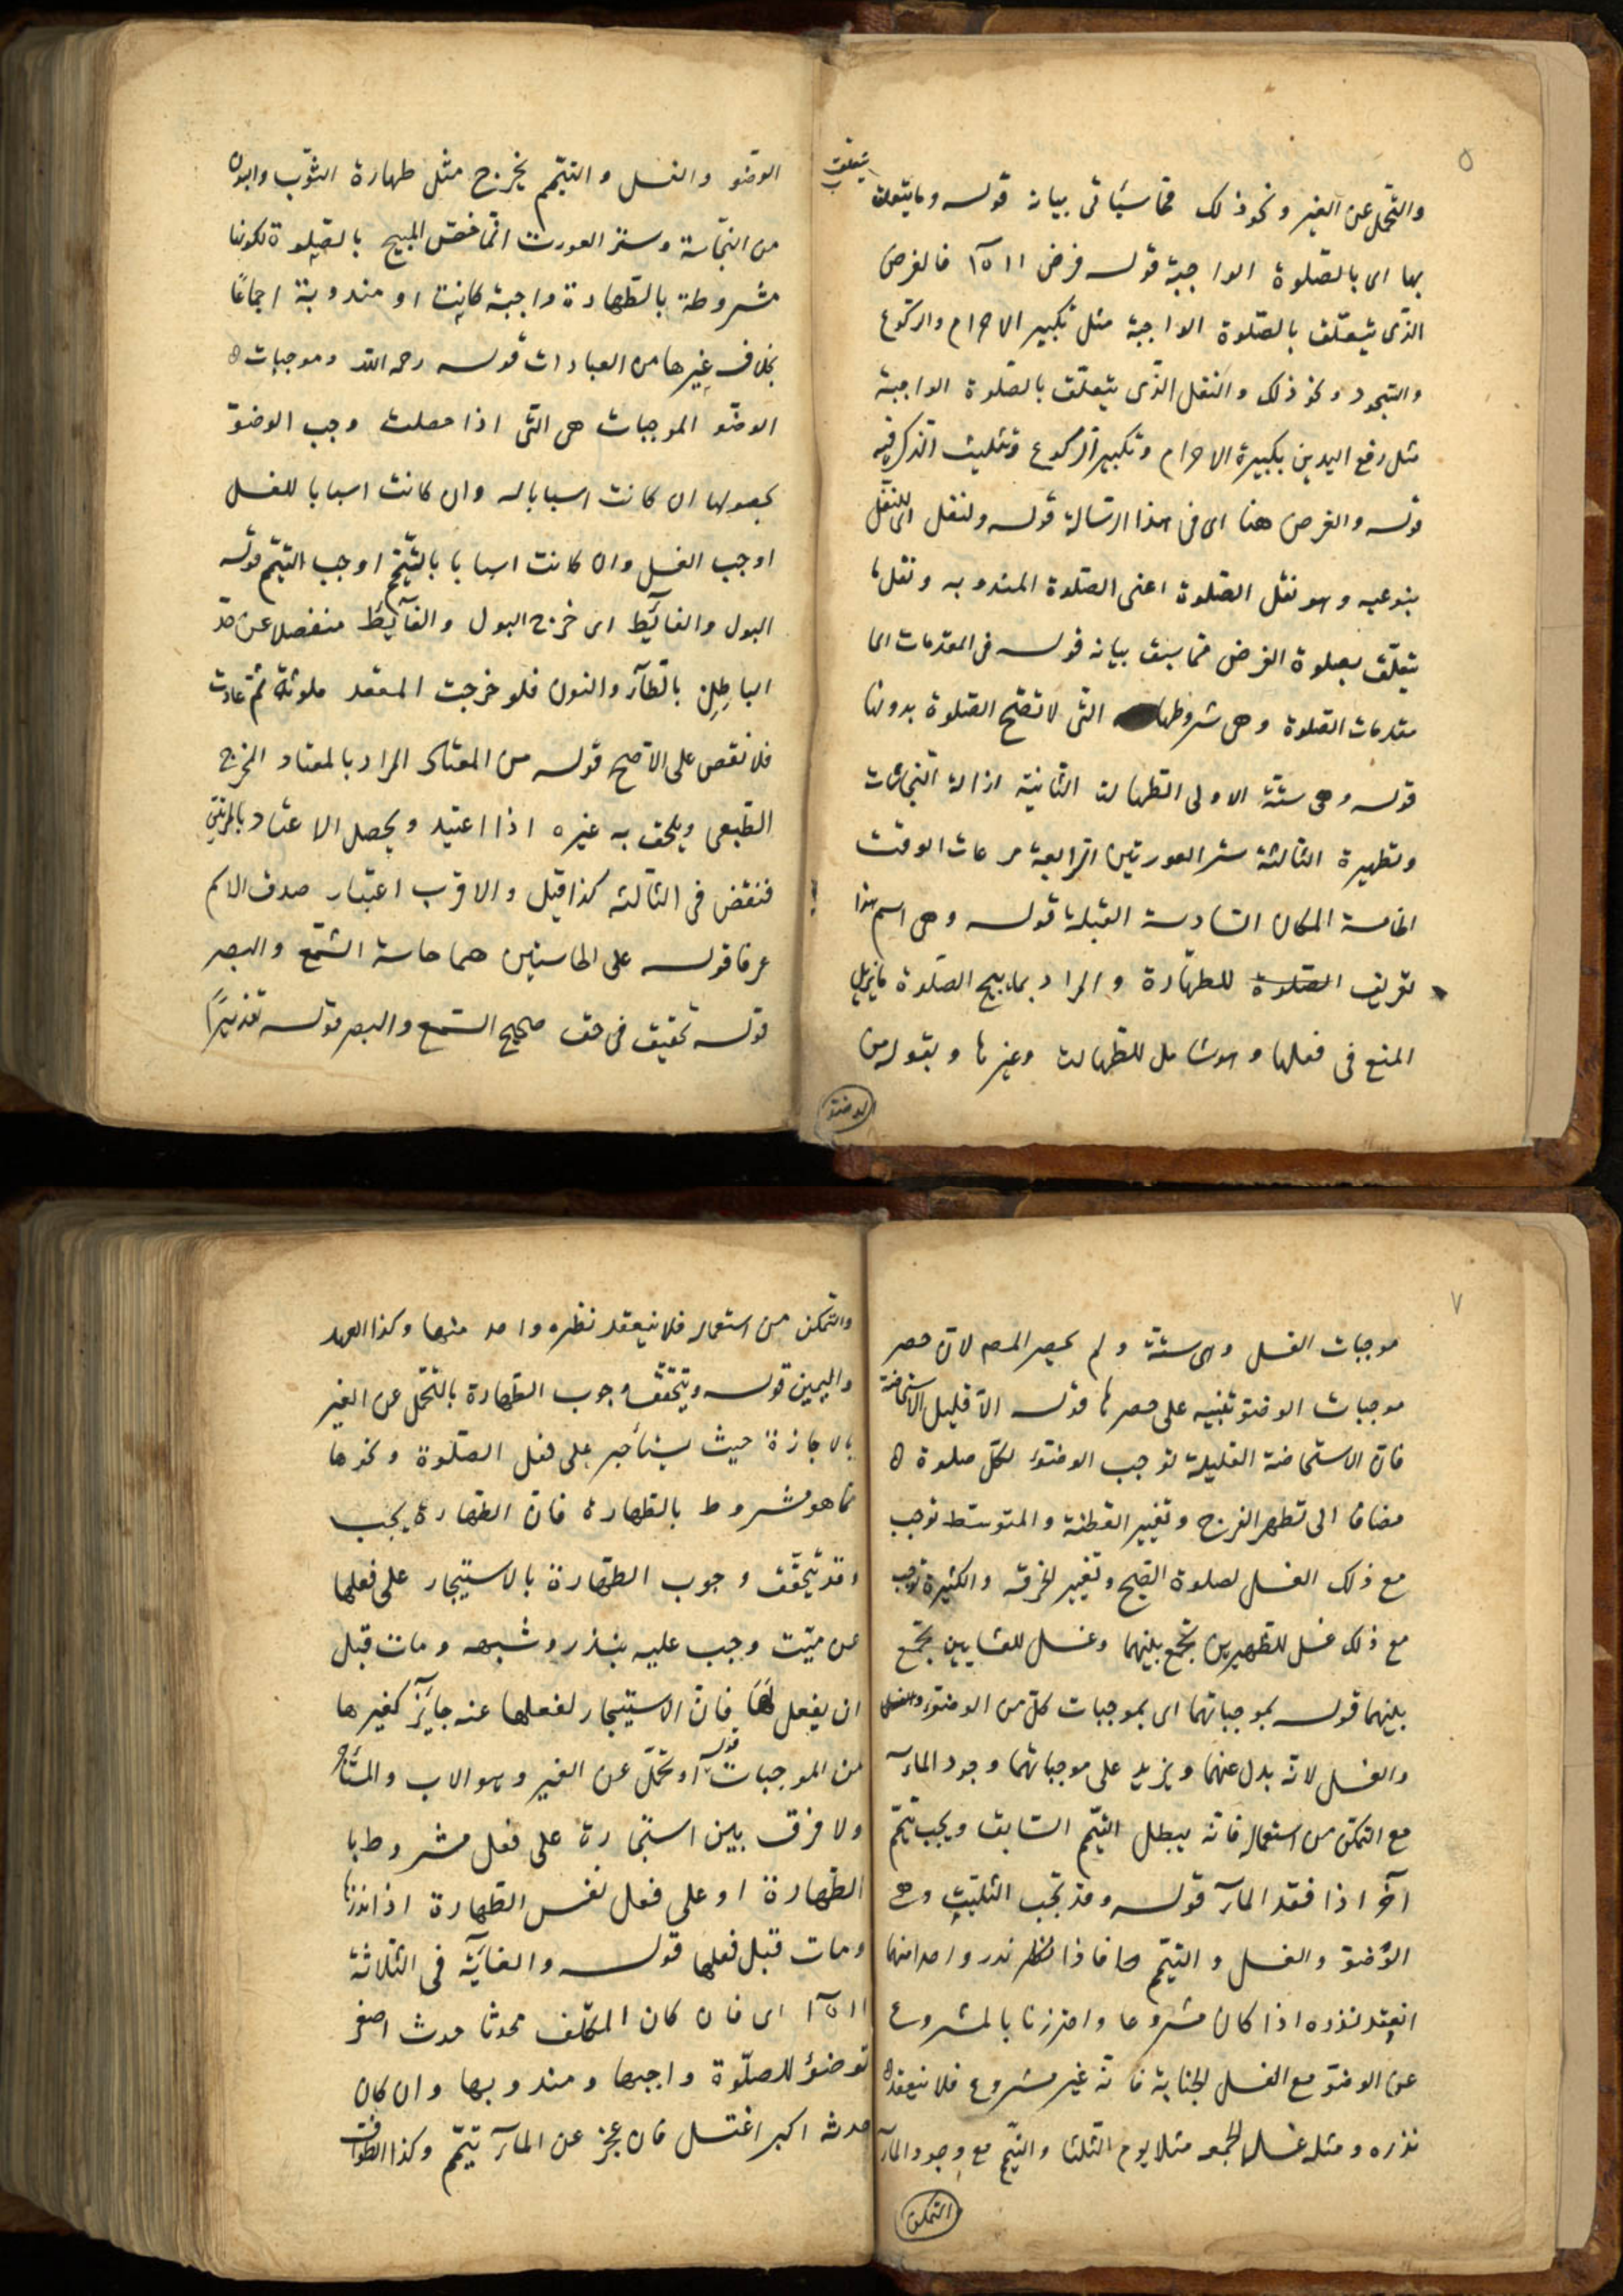 ٥
والتحمل عن الغير ونحو ذلك مما سيأتي بيانه قوله وما يتعلق
يتعلق
بها اى بالصلوة الواجبة قوله فرض ١١ ١٥ فالفرض
الذى يتعلق بالصلوة الواجبة مثل تكبير الاحرام والركوع
والسجود ونحو ذلك والنفل الذى يتعلق بالصلوة الواجبة
مثل رفع اليدين بتكبيرة الاحرام وتكبير الركوع وتثليث الذكر فيه
قوله والغرض هنا اى فى هذا الرسالة قوله ولنفل اى للنفل
بنوعيه وهو نفل الصلوة اعنى الصلوة المندوبه ونفل ما
يتعلق بصلوة الفرض مما سبق بيانه قوله فى المقدمات اى
مقدمات الصلوة وهى شروطها التى لا تصح الصلوة بدونها
قوله وهى ستة الاولى الطهارت الثانية ازالة النجاسات
وتطهيرة الثالثة ستر العورتين الرابعة مرعات الوقت
الخامسة المكان السادسة القبلة قوله وهى اسم هذا
تعريف الصلوة للطهارة والمراد بما يبيح الصلوة ما يزيل
المنع فى فعلها وهو شامل للطهارت وغيرها وبقوله من
الوضو
الوضو والغسل والتيمم يخرج مثل طهارة الثوب وابدن
من النجاسة وستر العورت انما خص المبيح بالصلوة لكونها
مشروطة بالطهارة واجبة كانت او مندوبة اجماعا
بخلاف غيرها من العبادات قوله رحمه الله وموجبات ه
الوضو الموجبات هى التى اذا حصلت وجب الوضو
بحصولها ان كانت اسبابا له وان كانت اسبابا للغسل
اوجب الغسل وان كانت اسبابا بالتيمم اوجب التيمم قوله
البول والغائط اى خرج البول والغائط منفصلا عن حد
الباطن بالطآء والنون فلو خرجت المقعد ملوثة ثم عادت
فلا نقض على الاصح قوله من المعتاد المراد بالمعتاد المخرج
الطبيعى ويلحق به غيره اذا اعتيد ويحصل الاعتياد بالمرتين
فنقض فى الثالثه كذا قيل والاقرب اعتبار صدق الاسم
عرفا قوله على الحاستين هما حاسة السمع والبصر
قوله تحقيق فى حق صحيح السمع والبصر قوله تقديرا
٧
موجبات الغسل وهى ستة ولم يحصر المصه لان حصر
موجبات الوضو تنبيه على حصرها قوله الا قليل الاستحاضة
فان الاستحاضة القليلة توجب الوضوء لكل صلوة ه
مضافا الى تطهر الفرج وتغيير القطنة والمتوسط توجب
مع ذلك الغسل لصلوة الصبح وتغيير الخرقه والكثيرة توجب
مع ذلك غسل للظهرين تجمع بينهما وغسل للعشايين تجمع
بينهما قوله بموجباتهما اى بموجبات كل من الوضوء والغسل
والغسل لانه بدل عنهما ويزيد على موجباتهما وجود المآء
مع التمكن من استعماله فانه يبطل التيمم السابق ويجب تيمم
آخر اذا فقد المآء قوله وقد تجب الثلثية وهى
الوضو والغسل والتيمم فاذا نذر واحدا منها
انعقد نذره اذا كان مشروعا واحترزنا بالمشروع
عن الوضو مع الغسل الجنابة فانه غير مشروع فلا ينعقد ه
نذره ومثله غسل الجمعه مثلا يوم الثلثا والتيمم مع وجود المآء
التمكن
والتمكن من استعماله فلا ينعقد نظره واحد منها وكذا العهد
واليمين قوله ويتحقق وجوب الطهارة بالتحمل عن الغير
بالاجازة حيث يستأجر على فعل الصلوة ونحوها
مما هو مشروط بالطهارة فان الطهارة يجب
وقد يتحقق وجوب الطهارة بالاستيجار على فعلها
عن ميت وجب عليه بنذر وشبهه ومات قبل
ان يفعل لها فان الاستيجار لفعلها عنه جايز كغيرها
من الموجبات قوله او تحمل عن الغير وهو الاب والمستأجر
ولا فرق بين استجارة على فعل مشروط با
الطهارة او على فعل نفس الطهارة اذا نذرها
ومات قبل فعلها قوله والغاية فى الثلاثة
١١ ١٥ اى فان كان المكلف محدثا حدث اصغر
توضؤ للصلوة واجبها ومندوبها وان كان
حدثه اكبر اغتسل فان عجز عن المآء تيمم وكذا الطواف